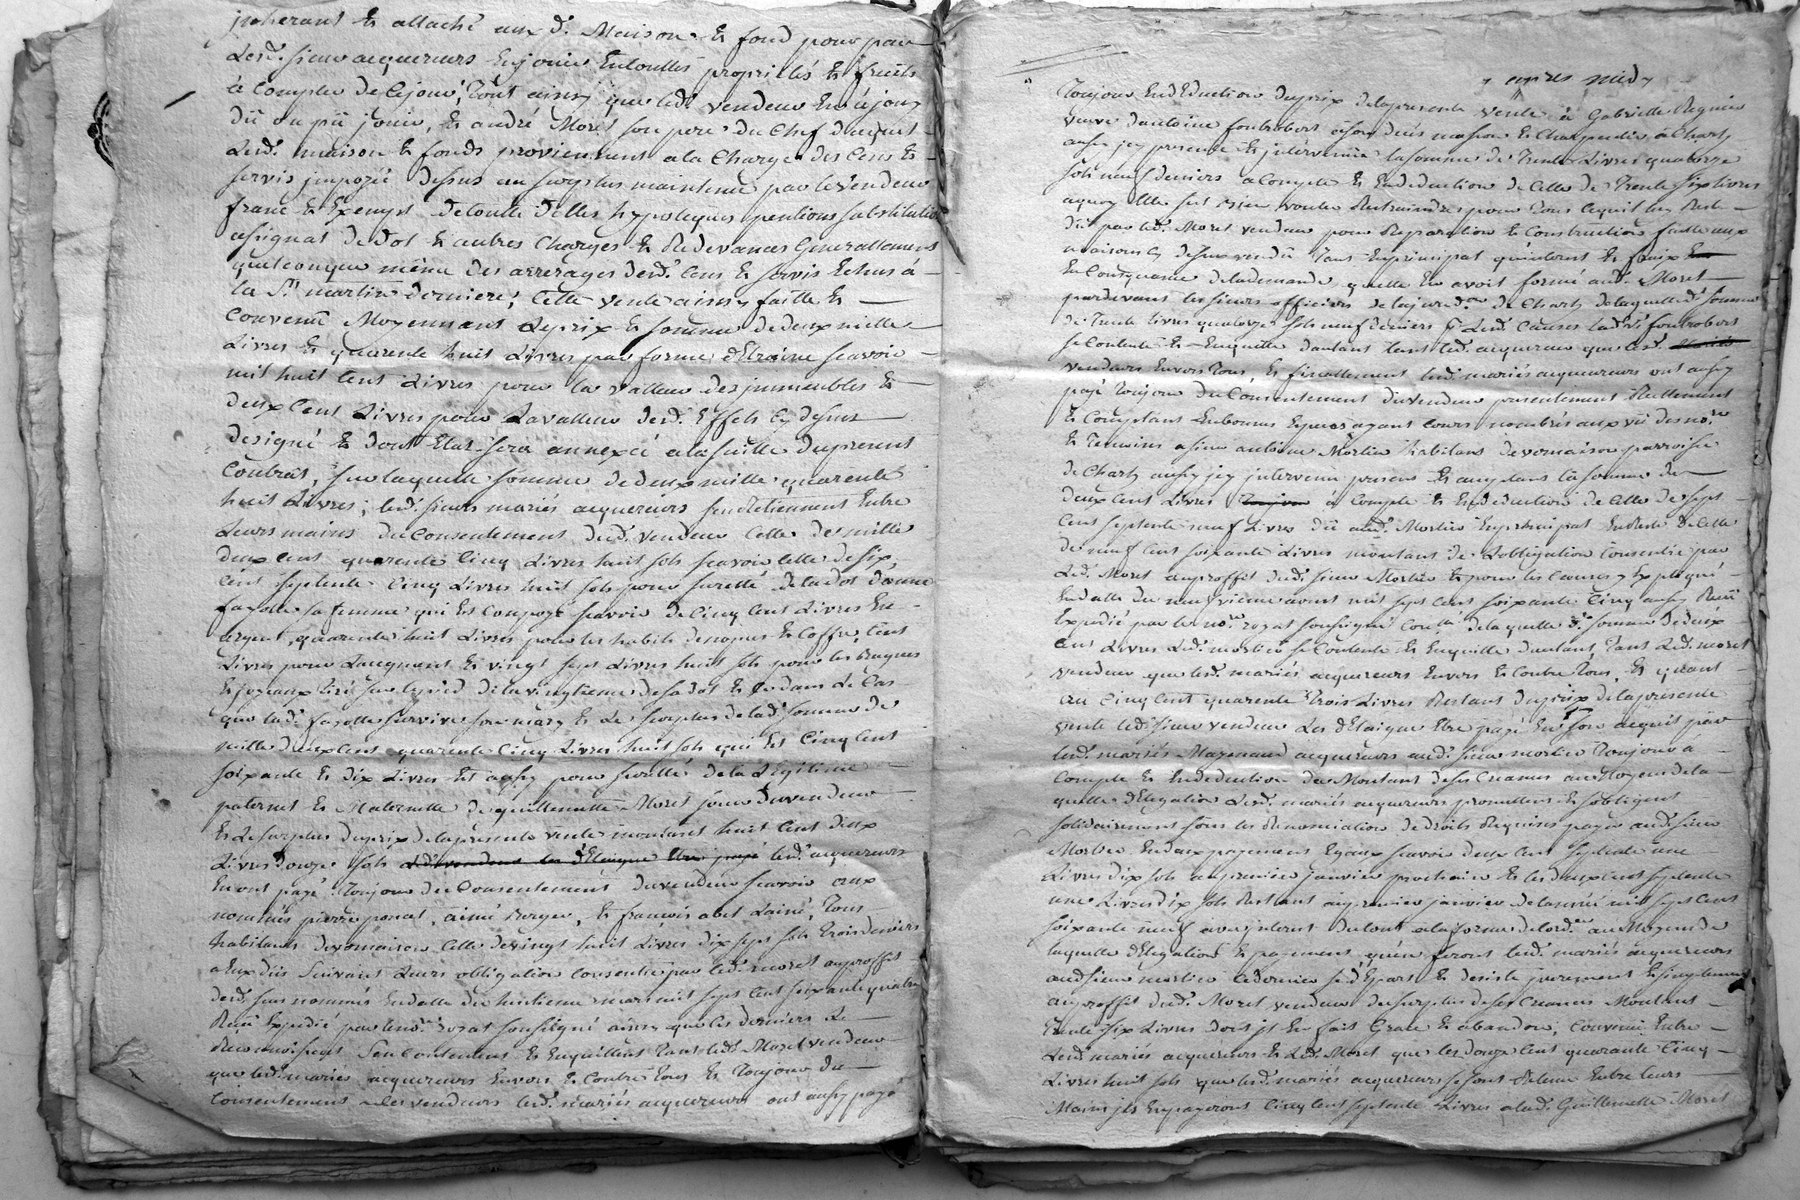 jnherant & attaché aux d. Maison & fond pour par
Lesd. sieur acquereurs En jouir En touttes proprietés & fruits
à Compter De Cejour, Tout ainsy que led. vendeur En à jouy
Dû ou pû jouir, & andré Moret son pere Du Chef Duquel
Lesd. maison & fonds proviennent a la Charge des Cens &
servis jmpozés Dessus au surplus maintenue par le vendeur
franc & Exempt de toutte Dettes hypoteques pentions substitution
assignat de Dot & autres Charges & Redevances Generallement
quelconque même Des arrerages desd. Cens & servis Echus à
la St. martin Derniere, Cette vente ainsy faitte &
Convenu Moyennant Le prix & somme de deux mille
Livres & quarente huit Livres par forme d'Etreine scavoir
mil huit Cent Livres pour la valleur des jmmeubles &
deux Cent Livres pour La valleur desd. Effets Cy dessus
designé & dont Etat sera annexcé a la suitte du present
Contrat, sur laquelle somme de deux mille quarente
huit Livres, lesd. sieurs mariés acquereurs Retiennent Entre
Leurs mains Du Consentement dud. vendeur Celle de mille
deux cent quarente Cinq Livres huit sols scavoir Celle de six
Cent septente Cinq Livres huit sols pour suretté de la dot d'anne
fayolle sa femme qui Est Composé scavoir de Cinq Cent Livres En
argent, quarente huit Livres pour les habits de nopces & Coffre, Cent
Livres pour Laugment & vingt sept Livres huit sols pour les Bagues
& joyaux
que lad. fayolle survive son mary & Le surplus de lad. somme de
mille deux Cent quarente Cinq Livres huit sols qui Est Cinq Cent
soixante & dix Livres Est aussy pour suretté de la Legitime
paternel & Maternelle de guillemette Moret sœur du vendeur
& Le surplus du prix de la presente vente montant huit Cent deux
Livres douze sols led. vendeur Etre payé lesd. acquereurs
En ont payé Toujour du Consentement du vendeur scavoir aux
nommés pierre ponat, aimé Berger, & francois abet Lainé, Tous
habitants de vomaison Celle de vingt huit Livres dix sept sols trois deniers
a Eux dûs suivant Leurs obligation consentie par led. moret au proffit
desd. sus nommés En datte du huitieme mars mil sept Cent soixante quatre
Reçu Expedié par le no.re rozat soussigné ainsy que Ces derniers Le
Reconnoissent sen Contentent & En quittent Tant led. Moret vendeur
que lesd. mariés acquereurs Envers & Contre tous & Toujour du
consentement des vendeurs lesd. mariés acquereurs ont aussy payé
apres midy
Toujour En Deduction du prix de la presente vente à Gabrielle Regnier
veuve d'antoine fontrobert
aussy jcy presente & jntervenue la somme de Trente Livres quatorze
sols neuf deniers a Compte & En deduction de Celle de Trente six livres
a quoy Elle sest bien voulu Restraindre pour Tous Ce qui luy Est
Dû par led. Moret vendeur pour Reparation & Construction faitte aux
maisons Cy dessus vendû Tant En principal qu'interest & frais
En Consequence de la demande quelle En avoit formé aud. Moret
pardevant les sieurs officiers de la jurid.on de Charly de laquelle d. somme
de Trente Livres quatorze sols neuf deniers p.r Lesd. Causes lad. v.e fontrobert
se Contente & En quitte d'autant tant led. acquereur que led.
vendeurs Envers Tous, & finallement lesd. mariés acquereurs ont aussy
payé Toujour du Consentement du vendeur presentement Reellement
& Comptant En bonnes Especes ayant Cours nombrés aux vû des no.re
& Temoins a sieur antoine Mortier habitant de vomaison parroisse
de Charly aussy jcy jntervenu present & acceptant la somme de
deux Cent Livres à Compte & En deduction de Celle de sept
Cent septente neuf Livres dû aud. Mortier En principal En Reste de Celle
de neuf Cent soixante Livres montant de L'obligation Consentie par
Led. Moret au proffit dud. sieur Mortier & pour les Causes y Expliqué
En datte du neufvieme avril mil sept Cent soixante Cinq aussy Reçu
Expedié par le no.re rozat soussigné Con.tlé de laquelle d. somme de deux
Cent Livres Led. mortier se Contente & En quitte d'autant Tant Led. moret
vendeur que lesd. mariés acquereurs Envers & Contre Tous, & quant
au Cinq Cent quarente Trois Livres Restant du prix de la presente
vente led. sieur vendeur
lesd. mariés Mazenaud acquereurs aud. sieur mortier Toujour à
Compte & En deduction du Montant de ses Creances au Moyen de la
quelle d'Elegation Lesd. mariés acquereurs promettent & s'obligent
solidairement sous les Renonciation de droits Requises payer aud. sieur
Mortier En deux payement Egaux scavoir deux Cent septente une
Livres dix sols au premier janvier prochain & les deux Cent septente
une Livres dix sols Restant au premier janvier de l'année mil sept Cent
soixante neuf avec jnterest du tout a la forme de lord.ce au Moyen de
laquelle d'Elegation & payement qu'en feront lesd. mariés acquereurs
aud. sieur mortier Ce dernier se d'Epart & desiste purement & simplement
au proffit dud. Moret vendeur du surplus de ses Creances Montant
Trente six Livres dont jl En fait Grace & abandon, Convenu Entre
Lesd. mariés acquereurs & Led. Moret que les douze Cent quarante Cinq
Livres huit sols que lesd. mariés acquereurs se sont Retenu Entre leurs
Mains jls En payeront Cinq Cent septente Livres a lad. Guillemette Moret